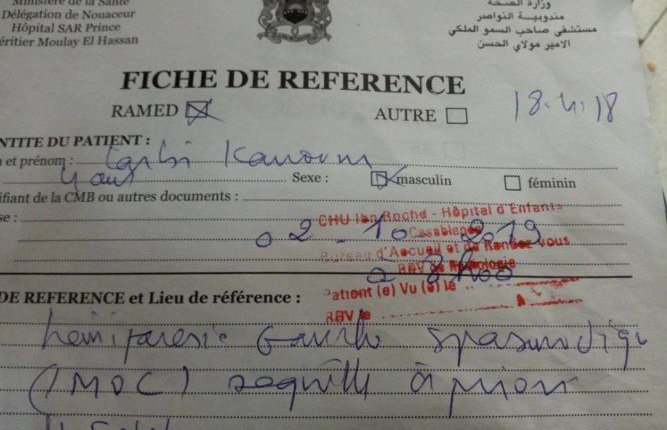 Ministère de la Santé
Délégation de Nouaceur
Hôpital SAR Prince
éritier Moulay El Hassan
وزارة الصحة
مندوبية النواصر
مستشفى صاحب السمو الملكي
الامير مولاي الحسن
FICHE DE REFERENCE
RAMED AUTRE 18.4.18
ENTITE DU PATIENT :
et prénom : Larbi
4 ans Sexe : masculin féminin
ifiant de la CMB ou autres documents :
se :
CHU Ibn Rochd - Hôpital d'Enfants
Casablanca
02-10-2019
Bureau d'Accueil et de Rendez vous
RDV de
à 8h00
DE REFERENCE et Lieu de référence :
Patient (e) Vu (e) le
RDV le
hémiparésie Gauche spasmodique
(IMOC) séquelle à priori